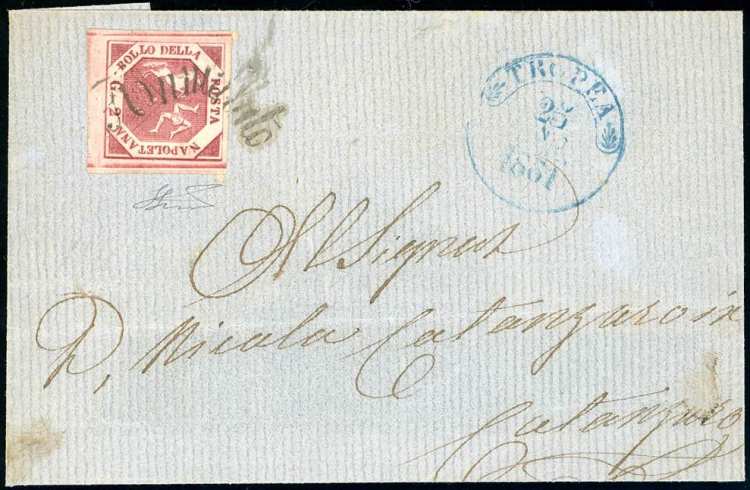 BOLLO DELLA
POSTA
NAPOLETANA
G. 2
Annullato
TROPEA
22
1861
All Signor
D. Nicola
Catanzaro